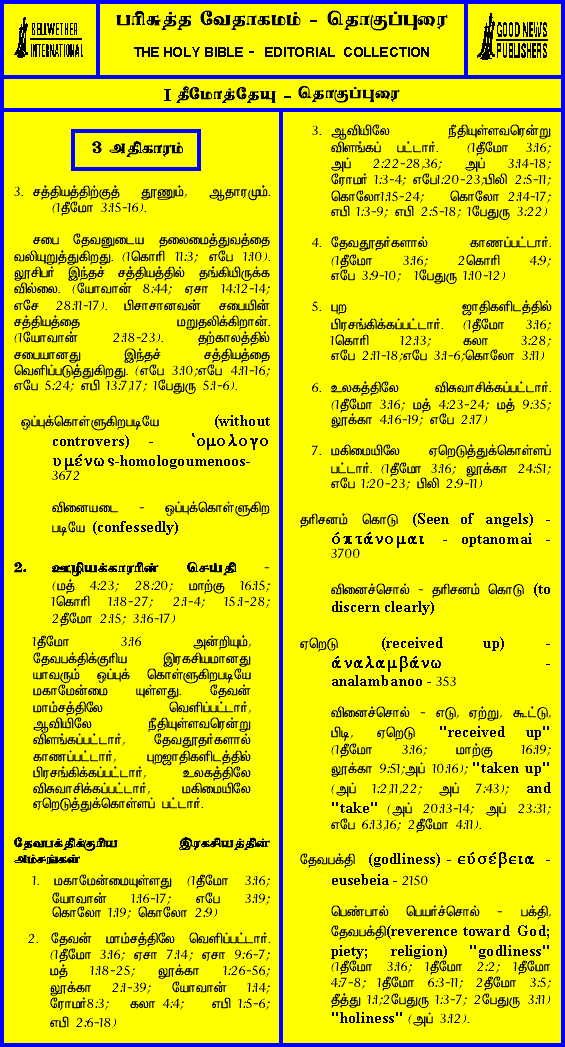 BELLWETHER
INTERNATIONAL
பரிசுத்த வேதாகமம் - தொகுப்புரை
THE HOLY BIBLE - EDITORIAL COLLECTION
GOOD NEWS
PUBLISHERS
I தீமோத்தேயு - தொகுப்புரை
3 அதிகாரம்
3. சத்தியத்திற்குத் தூணும், ஆதாரமும்.
(1தீமோ 3:15-16).
சபை தேவனுடைய தலைமைத்துவத்தை
வலியுறுத்துகிறது. (1கொரி 11:3; எபே 1:10).
லூசிபர் இந்தச் சத்தியத்தில் தங்கியிருக்க
வில்லை. (யோவான் 8:44; ஏசா 14:12-14;
எசே 28:11-17). பிசாசானவன் சபையின்
சத்தியத்தை மறுதலிக்கிறான்.
(1யோவான் 2:18-23). தற்காலத்தில்
சபையானது இந்தச் சத்தியத்தை
வெளிப்படுத்துகிறது. (எபே 3:10;எபே 4:11-16;
எபே 5:24; எபி 13:7,17; 1பேதுரு 5:1-6).
ஒப்புக்கொள்ளுகிறபடியே (without
controvers) - ὁμολογο
υμένως-homologoumenoos-
3672
வினையடை - ஒப்புக்கொள்ளுகிற
படியே (confessedly)
2. ஊழியக்காரரின் செய்தி -
(மத் 4:23; 28:20; மாற்கு 16:15;
1கொரி 1:18-27; 2:1-4; 15:1-28;
2தீமோ 2:15; 3:16-17)
1தீமோ 3:16 அன்றியும்,
தேவபக்திக்குரிய இரகசியமானது
யாவரும் ஒப்புக் கொள்ளுகிறபடியே
மகாமேன்மை யுள்ளது. தேவன்
மாம்சத்திலே வெளிப்பட்டார்,
ஆவியிலே நீதியுள்ளவரென்று
விளங்கப்பட்டார், தேவதூதர்களால்
காணப்பட்டார், புறஜாதிகளிடத்தில்
பிரசங்கிக்கப்பட்டார், உலகத்திலே
விசுவாசிக்கப்பட்டார், மகிமையிலே
ஏறெடுத்துக்கொள்ளப் பட்டார்.
தேவபக்திக்குரிய இரகசியத்தின்
அம்சங்கள்
1. மகாமேன்மையுள்ளது (1தீமோ 3:16;
யோவான் 1:16-17; எபே 3:19;
கொலோ 1:19; கொலோ 2:9)
2. தேவன் மாம்சத்திலே வெளிப்பட்டார்.
(1தீமோ 3:16; ஏசா 7:14; ஏசா 9:6-7;
மத் 1:18-25; லூக்கா 1:26-56;
லூக்கா 2:1-39; யோவான் 1:14;
ரோமர்8:3; கலா 4:4; எபி 1:5-6;
எபி 2:6-18)
3. ஆவியிலே நீதியுள்ளவரென்று
விளங்கப் பட்டார். (1தீமோ 3:16;
அப் 2:22-28,36; அப் 3:14-18;
ரோமர் 1:3-4; எபே1:20-23;பிலி 2:5-11;
கொலோ1:15-24; கொலோ 2:14-17;
எபி 1:3-9; எபி 2:5-18; 1பேதுரு 3:22)
4. தேவதூதர்களால் காணப்பட்டார்.
(1தீமோ 3:16; 2கொரி 4:9;
எபே 3:9-10; 1பேதுரு 1:10-12)
5. புற ஜாதிகளிடத்தில்
பிரசங்கிக்கப்பட்டார். (1தீமோ 3:16;
1கொரி 12:13; கலா 3:28;
எபே 2:11-18;எபே 3:1-6;கொலோ 3:11)
6. உலகத்திலே விசுவாசிக்கப்பட்டார்.
(1தீமோ 3:16; மத் 4:23-24; மத் 9:35;
லூக்கா 4:16-19; எபே 2:17)
7. மகிமையிலே ஏறெடுத்துக்கொள்ளப்
பட்டார். (1தீமோ 3:16; லூக்கா 24:51;
எபே 1:20-23; பிலி 2:9-11)
தரிசனம் கொடு (Seen of angels) -
ὀπτάνομαι - optanomai -
3700
வினைச்சொல் - தரிசனம் கொடு (to
discern clearly)
ஏறெடு (received up) -
ἀναλαμβάνω -
analambanoo - 353
வினைச்சொல் - எடு, ஏற்று, கூட்டு,
பிடி, ஏறெடு "received up"
(1தீமோ 3:16; மாற்கு 16:19;
லூக்கா 9:51;அப் 10:16); "taken up"
(அப் 1:2,11,22; அப் 7:43); and
"take" (அப் 20:13-14; அப் 23:31;
எபே 6:13,16; 2தீமோ 4:11).
தேவபக்தி (godliness) - εὐσέβεια -
eusebeia - 2150
பெண்பால் பெயர்ச்சொல் - பக்தி,
தேவபக்தி(reverence toward God;
piety; religion) "godliness"
(1தீமோ 3:16; 1தீமோ 2:2; 1தீமோ
4:7-8; 1தீமோ 6:3-11; 2தீமோ 3:5;
தீத்து 1:1;2பேதுரு 1:3-7; 2பேதுரு 3:11)
"holiness" (அப் 3:12).